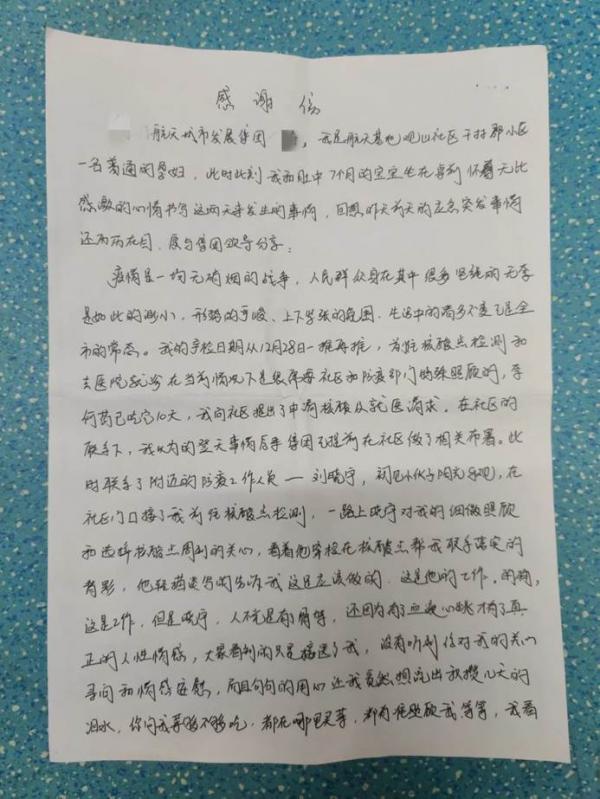 感谢信
航天城市发展集团 ，我是航天基地观山社区
一名普通的孕妇，此时此刻我和肚中7个月的宝宝坐在 怀着无比
感激的心情书写这两天来发生的事情，回想昨天前天的应急突发事情
还历历在目，愿与集团领导分享：
疫情是一场无硝烟的战争，人民群众身在其中很多 的无奈
是如此的渺小，形势的严峻、上下紧张的氛围、生活中的诸多不变已是全
市的常态。我的孕检日期从12月28日一推再推，前往核酸点检测和
去医院就诊在当前情况下是很需要社区和防疫部门特殊照顾的，
药已吃完10天，我向社区提出了申请核酸及就医请求。在社区的
联系下，我以为的 天事情后 集团已提前在社区做了相关布署。此
时联系了附近的防疫工作人员——刘晓宇，初见小伙子阳光乐观，在
社区门口接了我前往核酸点检测，一路上晓宇对我的细微照顾
和选择核酸点周到的关心，看着他穿梭在核酸点帮我联系落实的
背影，他轻描淡写的告诉我这是应该做的，这是他的工作。的确，
这是工作，但是晓宇，人不光是有骨骼，还因为有了 心跳才有了真
正的人性情怀，大家看到的只是接送了我，没有听到你对我的关心
寻问和情绪安慰，而且句句的用心让我竟然想流出积攒几天的
泪水，你问我 够不够吃，都在哪里买菜，都有谁照顾我等等，我看